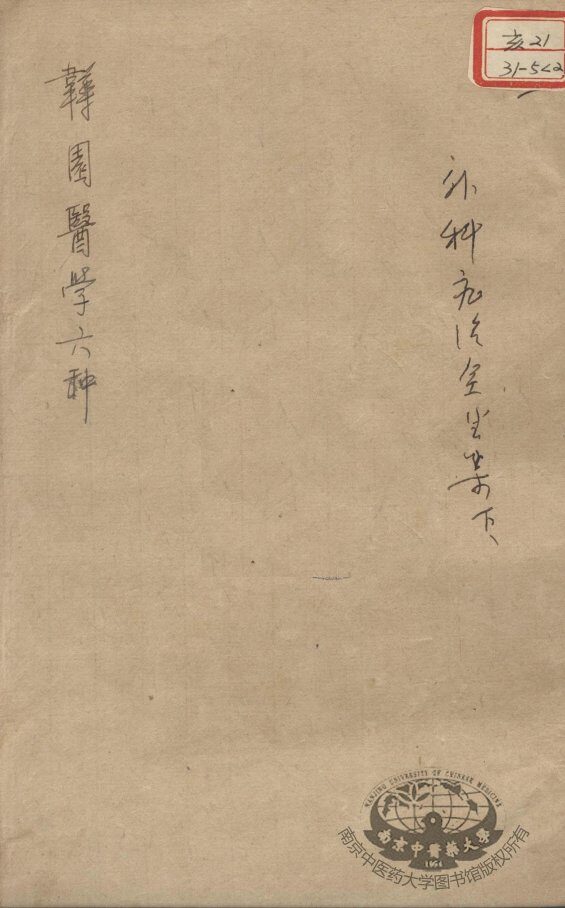 亥21
31-5<2
外科症治全生集下
韡園醫学六种
NANJING UNIVERSITY OF CHINESE MEDICINE
南京中醫藥大學
1954
南京中医药大学图书馆版权所有